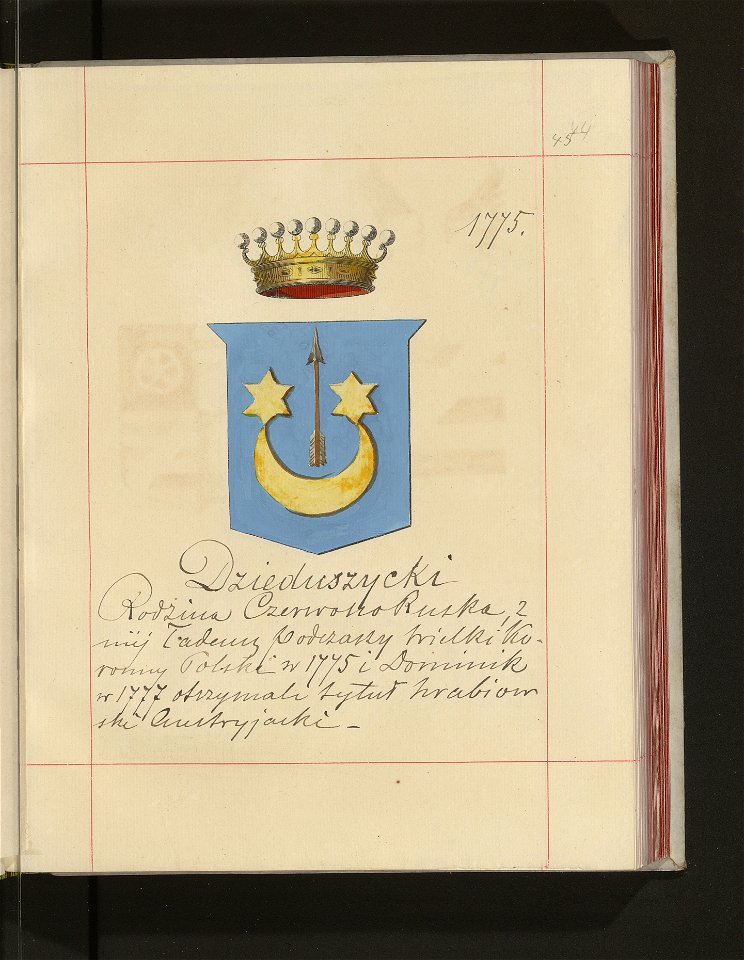 44
1775.
Dzieduszycki
Rodzina CzerwonoRuska, z
niéj Tadeusz Podczaszy Wielki Ko-
ronny Polski w 1775 i Dominik
w 1777 otrzymali tytuł hrabiow
ski Austryjacki –